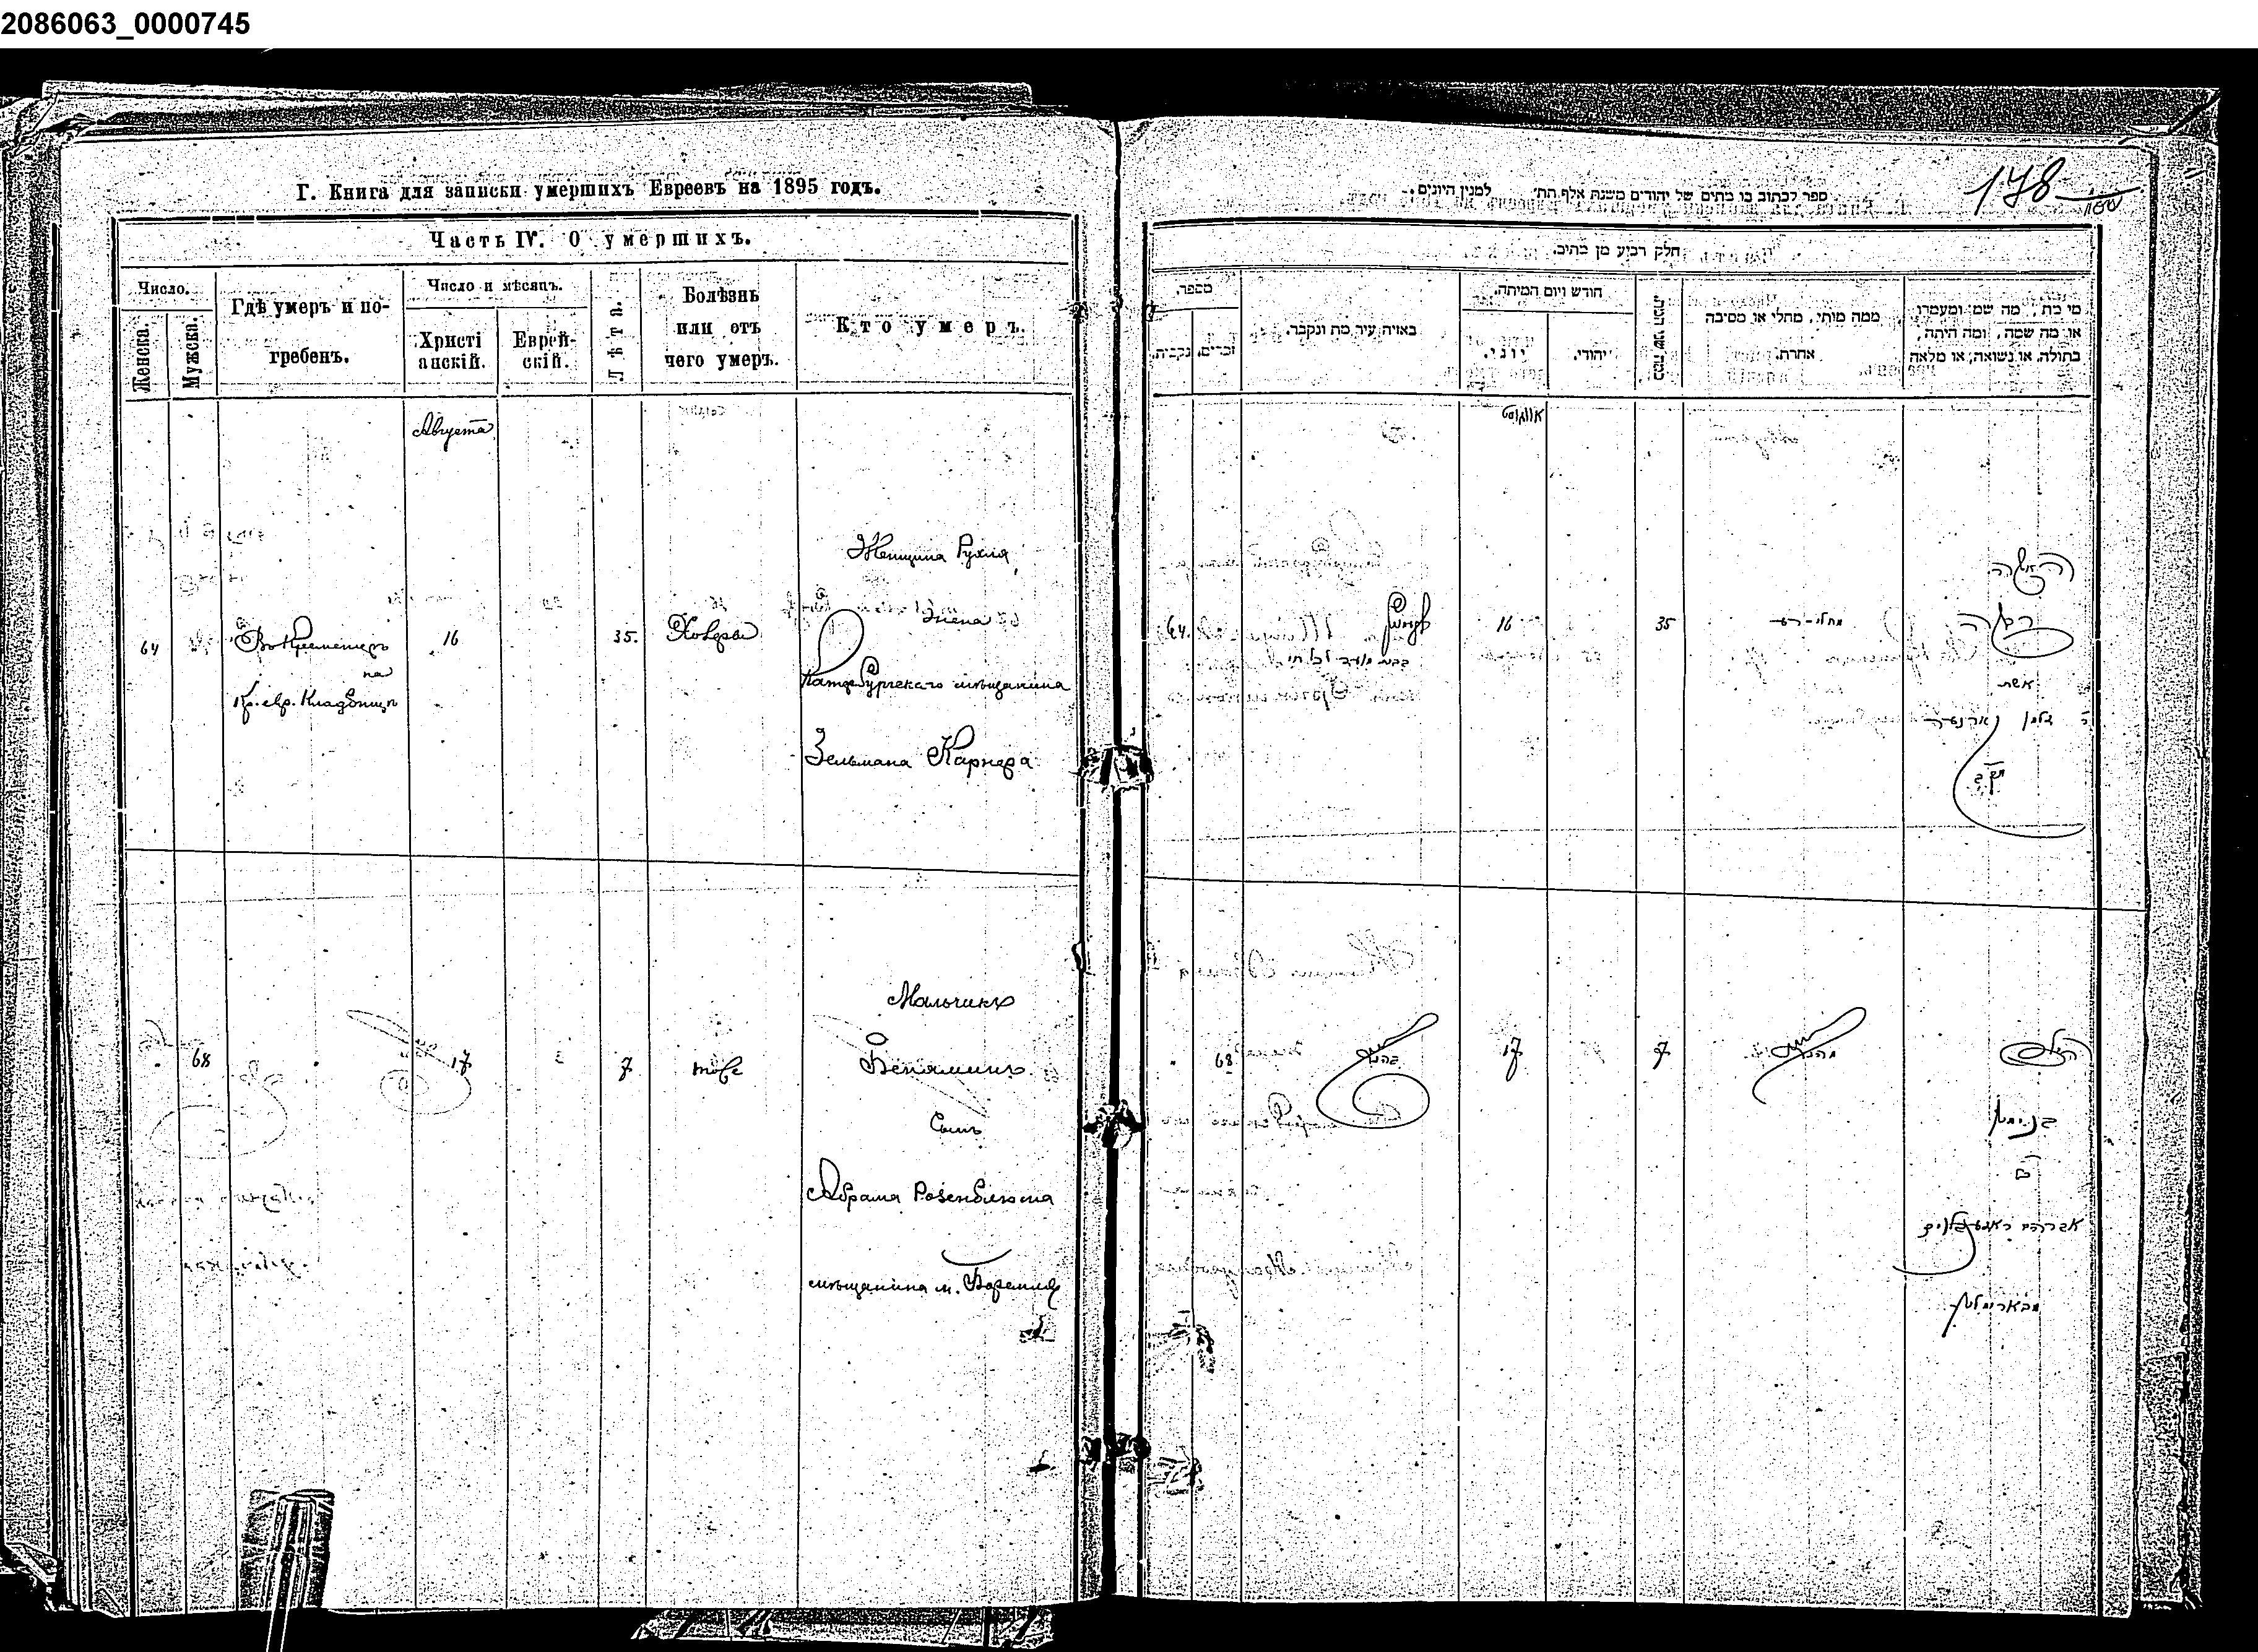 2086063_0000745
Г. Книга для записки умершихъ Евреевъ на 1895 годъ.
Часть IV. О умершихъ.
Число.
Женска.
Мужска.
Гдѣ умеръ и по-
гребенъ.
Число и мѣсяцъ.
Христі
анскій.
Еврей-
скій.
Лѣта.
Болѣзнь
или отъ
чего умеръ.
Кто умеръ.
Августа
Женщина Рухля
жена
64
Въ Кременецѣ
на
Кр. евр. Кладбищѣ
16
35.
Холеры
мѣщанина
Зельмана Карнера
68
17
7
тоже
Мальчикъ
Веніаминъ
Сынъ
Абрама Розенблюта
мѣщанина м. Боремля
178
ספר לכתוב בו מתים של יהודים משנת אלף הת׳ למנין היונים.
חלק רביע מן מתים.
מספר.
נקבות.
זכרים.
באויה עיר מת ונקבר.
חודש ויום המיתה.
יוני.
יהודי.
כמה שני המת.
ממה מותו. מחלי או מסיבה
אחרת.
מי מת, מה שמו ומעמדו
או מה שמה, ומה היתה,
בתולה, או נשואה, או מלאה
אווגוסט
64.
16
35
האשה
רחלה
אשת
68
17
7
הילד
בנימין
בן
אברהם ראזענבליט
מבארימלע